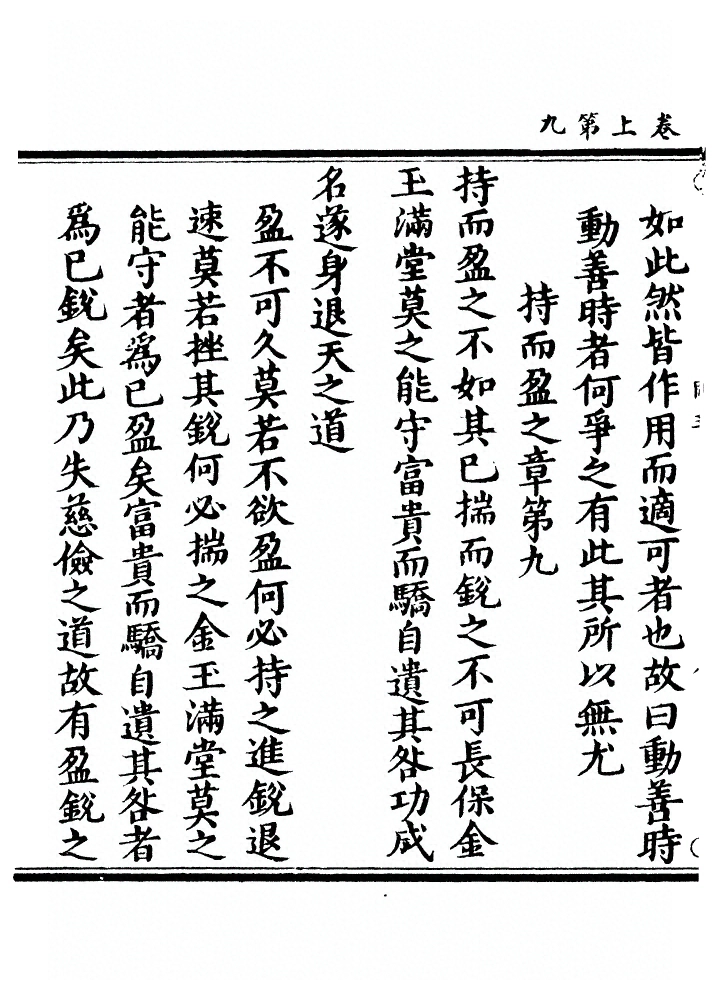 卷上第九
如此然皆作用而適可者也故曰動善時
動善時者何爭之有此其所以無尤
持而盈之章第九
持而盈之不如其已揣而銳之不可長保金
玉滿堂莫之能守富貴而驕自遺其咎功成
名遂身退天之道
盈不可久莫若不欲盈何必持之進銳退
速莫若挫其銳何必揣之金玉滿堂莫之
能守者為已盈矣富貴而驕自遺其咎者
為已銳矣此乃失慈儉之道故有盈銳之